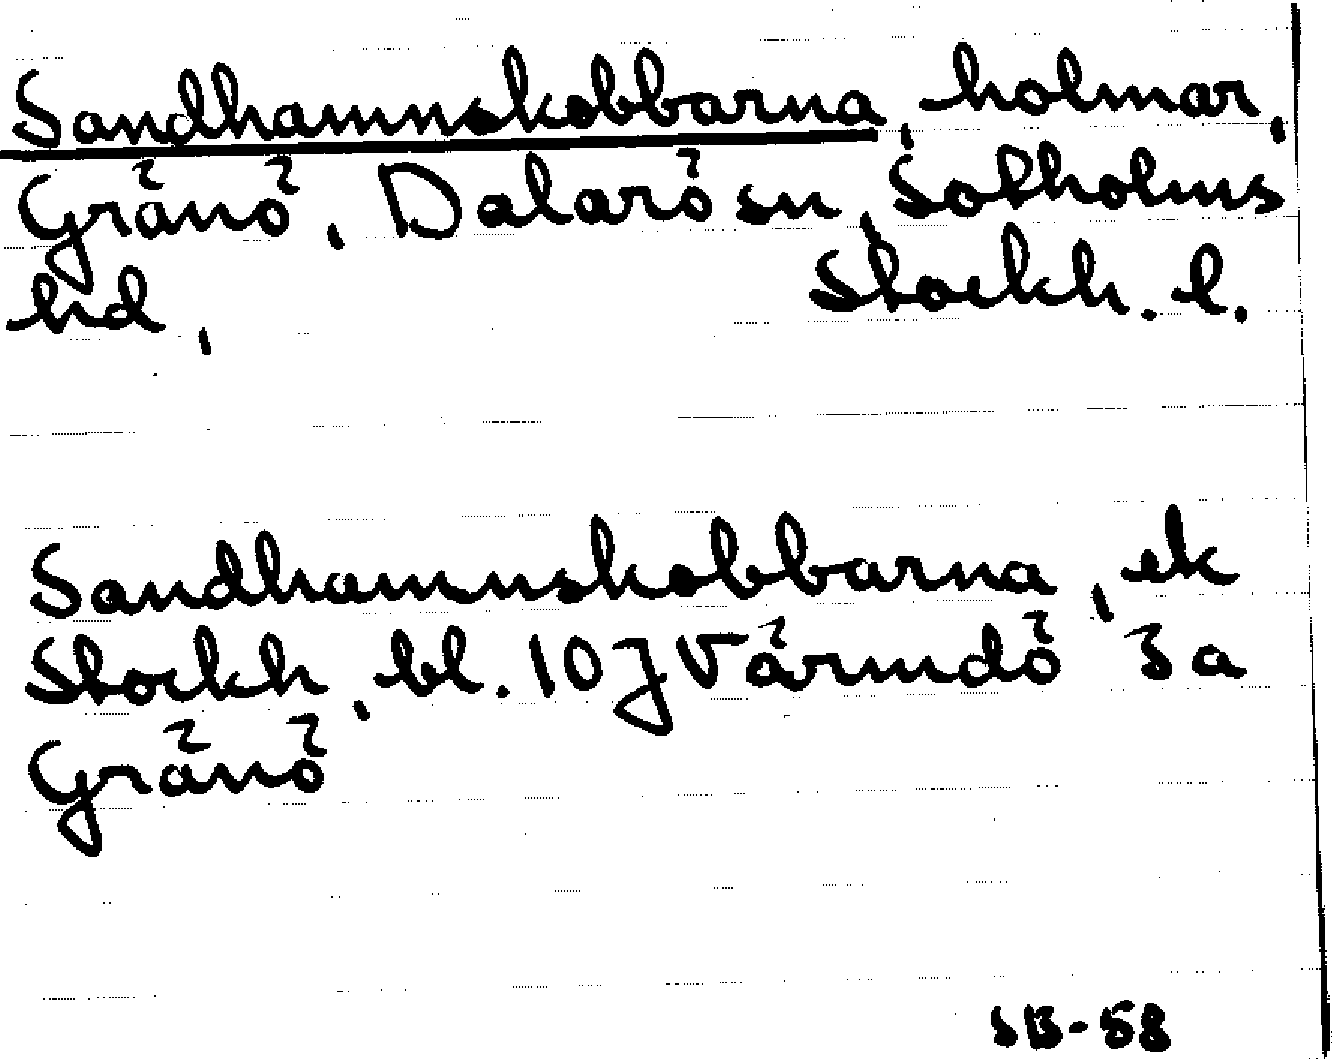 Sandhamnskobbarna, holmar,
Gränö, Dalarö sn, Sotholms
hd, Stockh. l.
Sandhamnskobbarna, ek
Stockh, bl. 10J Värmdö 3a
Gränö
SB-58